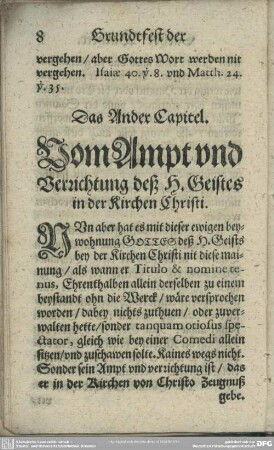 8 Grundtfest der
vergehen / aber Gottes Wort werden nit
vergehen. Isaiæ 40. ỳ. 8. vnd Matth. 24.
ỳ. 35.
Das Ander Capitel.
Vom Ampt vnd
Verrichtung deß H. Geistes
in der Kirchen Christi.
NVn aber hat es mit dieser ewigen bey-
wohnung GOTTES deß H. Geists
bey der Kirchen Christi nit diese mai-
nung / als wann er Titulo & nomine te-
nus, Ehrenthalben allein derselben zu einem
beystandt ohn die Werck / wäre versprochen
worden / dabey nichts zuthuen / oder zuver-
walten hette / sonder tanquam otiosus spe-
ctator, gleich wie bey einer Comedi allein
sitzen / vnd zuschawen solte. Kaines wegs nicht.
Sonder sein Ampt vnd verrichtung ist / das
er in der Kirchen von Christo Zeugnuß
gebe.
DFG